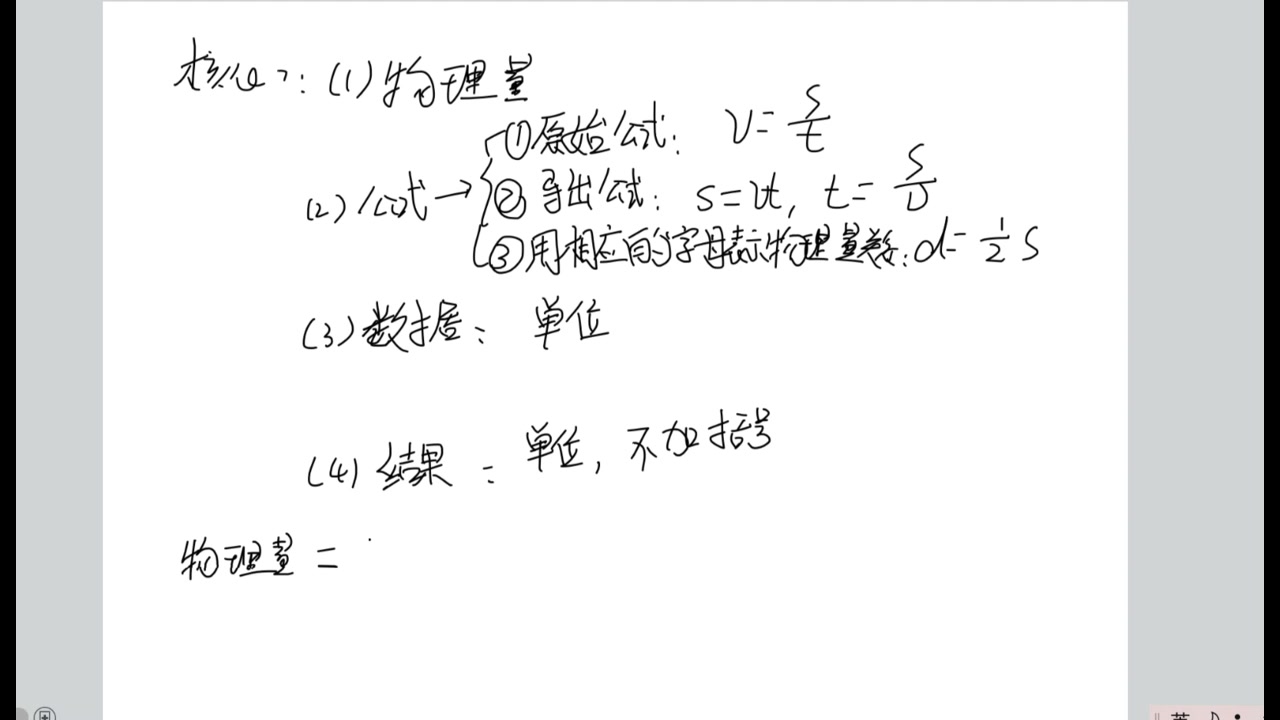 核心: (1) 物理量
(2) 公式 →
① 原始公式: v = s/t
② 导出公式: s = vt, t = s/v
③ 用相应的字母表示物理量关系: d = 1/2 s
(3) 数据: 单位
(4) 结果: 单位, 不加括号
物理量 =
英